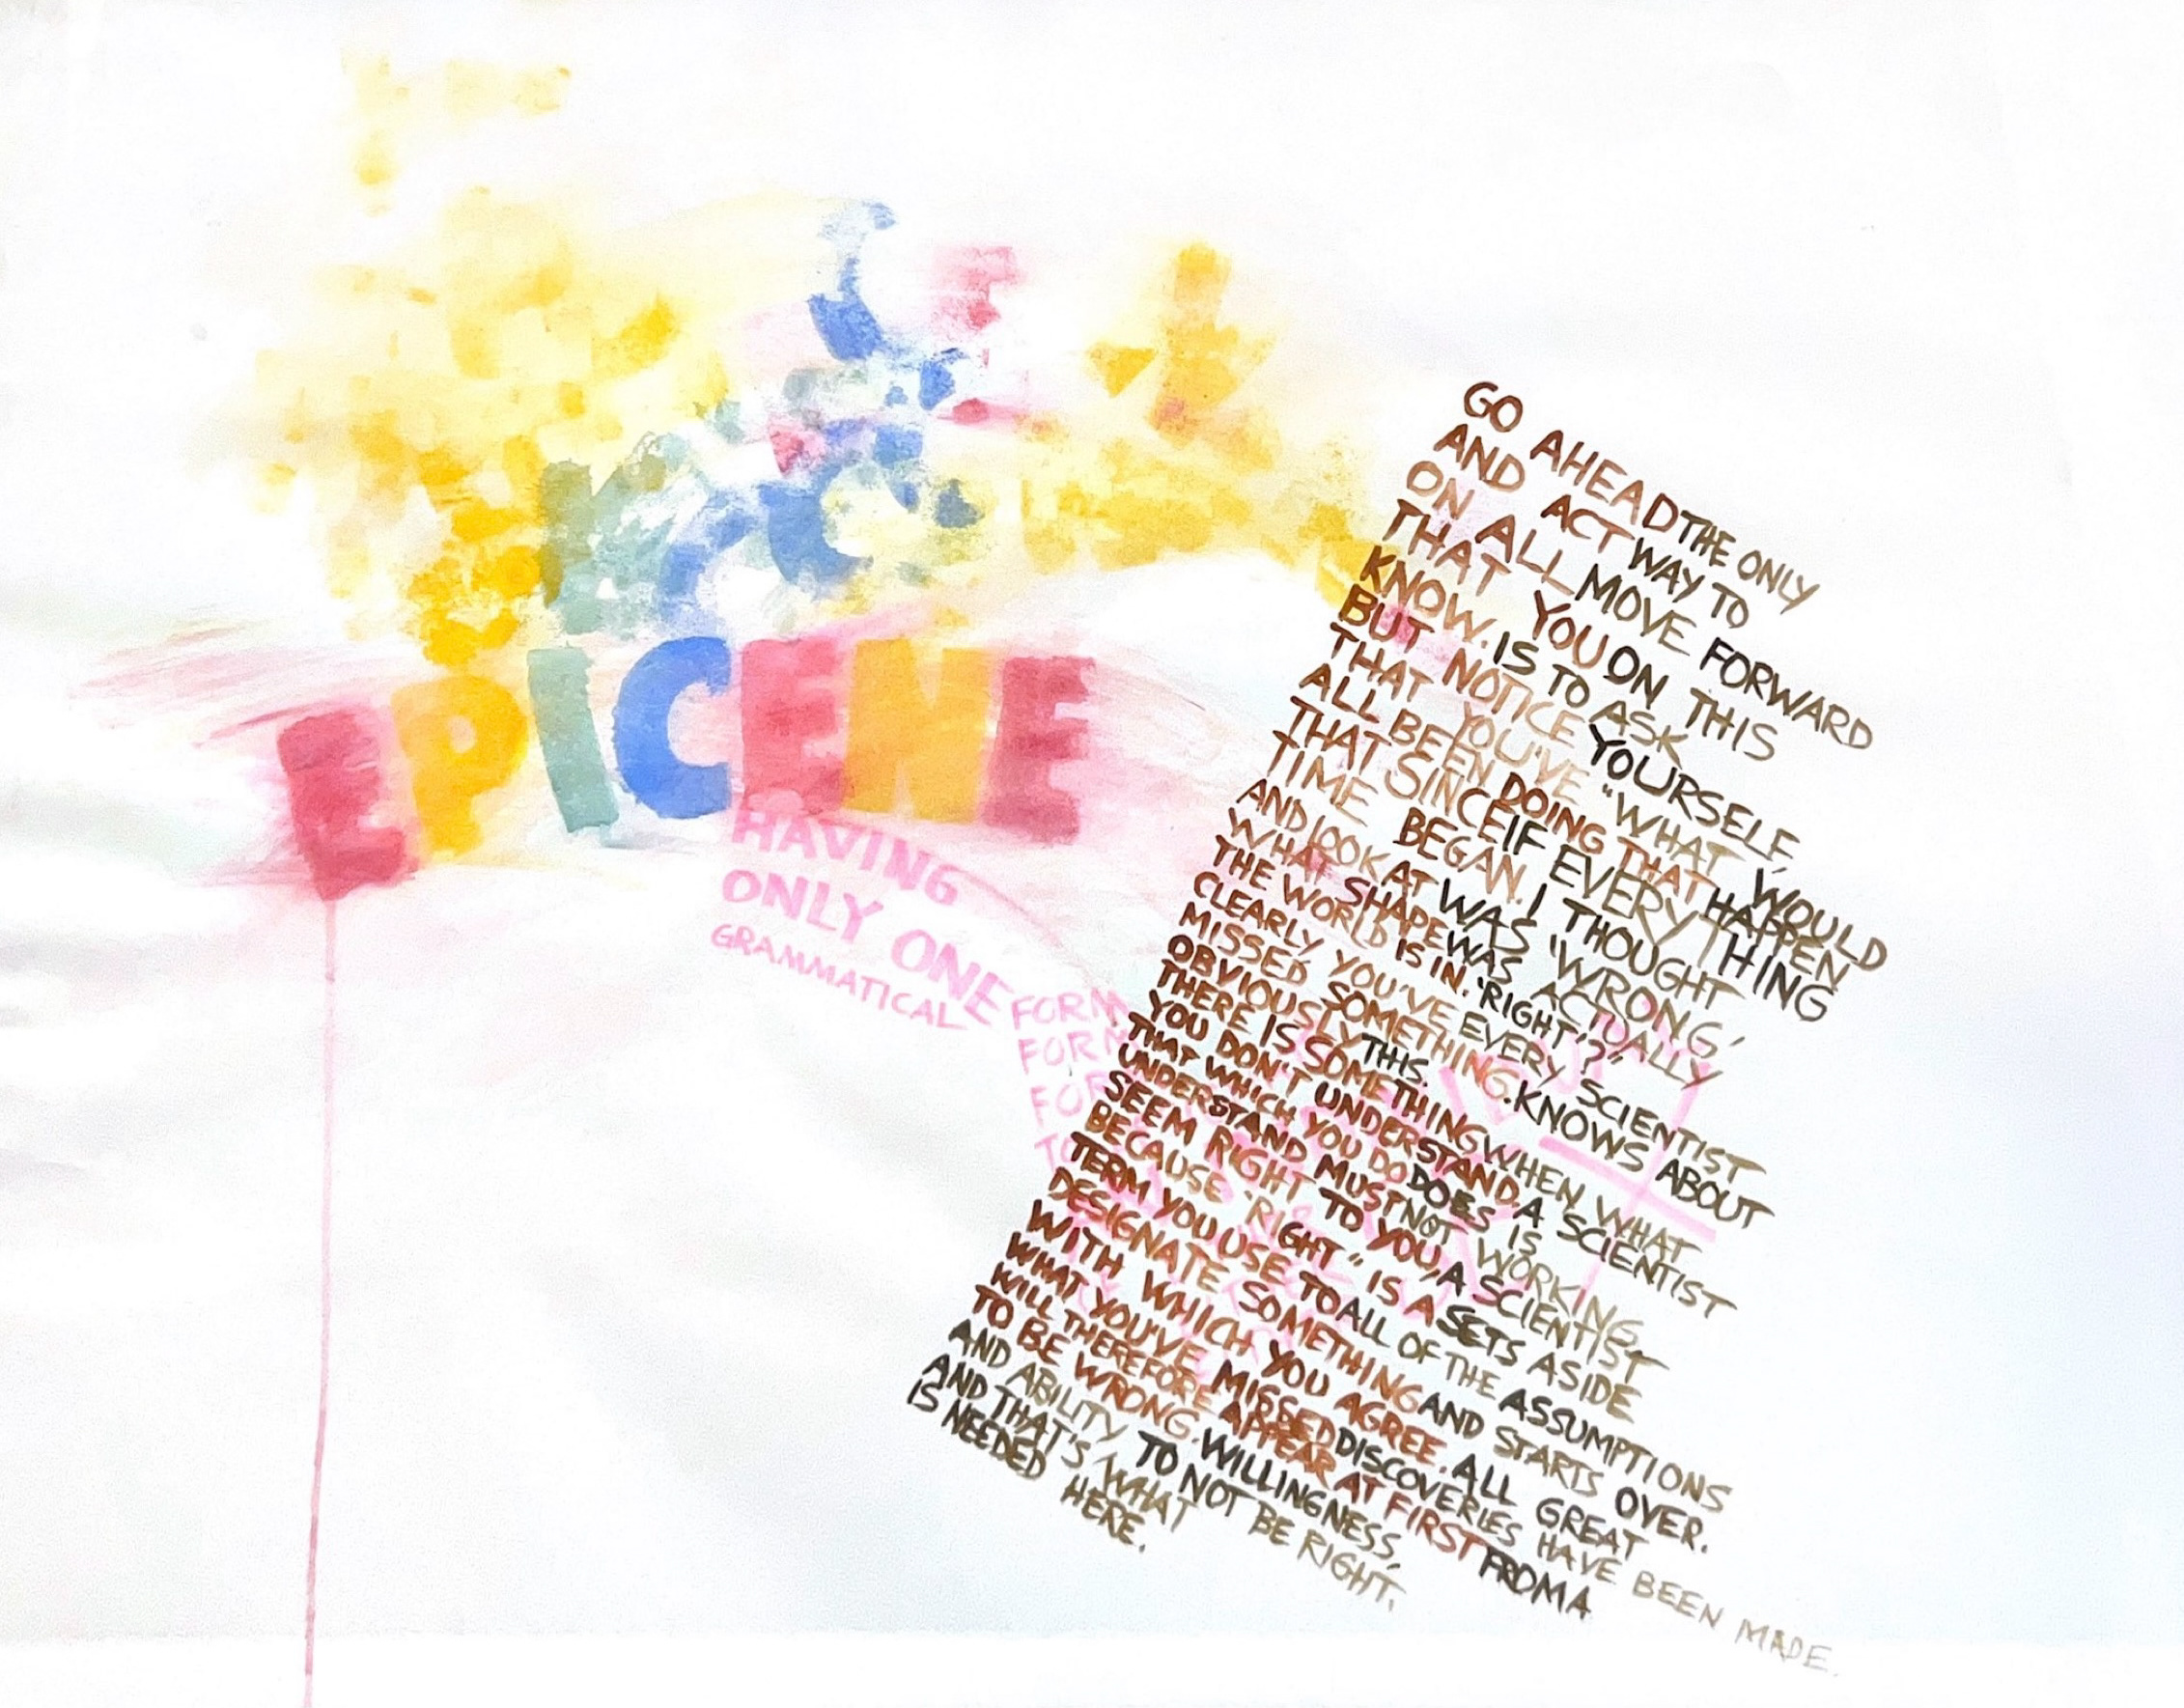 EPICENE
HAVING
ONLY ONE
GRAMMATICAL
FORM
FORM
GO AHEAD
AND ACT
ON ALL
THAT YOU
KNOW.
BUT NOTICE
THAT YOU'VE
ALL BEEN DOING THAT
THAT SINCE
TIME BEGAN.
AND LOOK AT
WHAT SHAPE
THE WORLD IS IN.
CLEARLY YOU'VE
MISSED SOMETHING.
OBVIOUSLY
THERE IS SOMETHING
YOU DON'T UNDERSTAND.
THAT WHICH YOU DO
UNDERSTAND MUST
SEEM RIGHT TO YOU,
BECAUSE "RIGHT" IS A
TERM YOU USE TO
DESIGNATE SOMETHING
WITH WHICH YOU AGREE.
WHAT YOU'VE MISSED
WILL THEREFORE APPEAR AT FIRST
TO BE WRONG.
THE ONLY
WAY TO
MOVE FORWARD
ON THIS
IS TO ASK
YOURSELF,
"WHAT WOULD
HAPPEN
IF EVERYTHING
I THOUGHT
WAS 'WRONG,'
WAS ACTUALLY
'RIGHT'?"
EVERY SCIENTIST
KNOWS ABOUT
THIS.
WHEN WHAT
A SCIENTIST
DOES IS
NOT WORKING,
A SCIENTIST
SETS ASIDE
ALL OF THE ASSUMPTIONS
AND STARTS OVER.
ALL GREAT
DISCOVERIES HAVE BEEN MADE
FROM A
WILLINGNESS,
AND ABILITY TO NOT BE RIGHT.
AND THAT'S WHAT
IS NEEDED HERE.